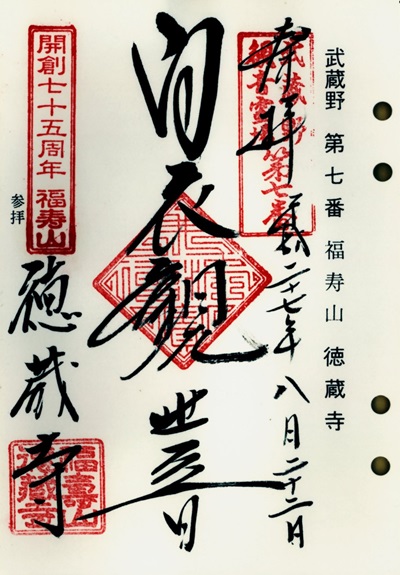 武蔵野 第七番 福寿山 徳蔵寺
武蔵野
観音霊場第七番
奉拝 平成二十七年八月二十二日
白衣観世音
開創七十五周年 福寿山
参拝
徳蔵寺
福寿山
徳蔵寺